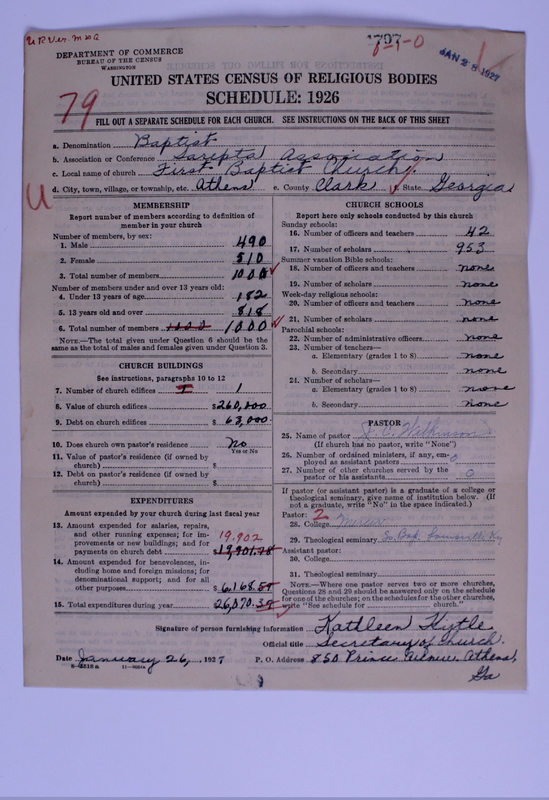 U.R.Ver. M&A
1797
7-1-0
JAN 28 1927
DEPARTMENT OF COMMERCE
BUREAU OF THE CENSUS
WASHINGTON
UNITED STATES CENSUS OF RELIGIOUS BODIES
SCHEDULE: 1926
79
FILL OUT A SEPARATE SCHEDULE FOR EACH CHURCH. SEE INSTRUCTIONS ON THE BACK OF THIS SHEET
a. Denomination Baptist
b. Association or Conference Sarepta Association
c. Local name of church First Baptist Church
U
d. City, town, village, or township, etc. Athens e. County Clark f. State Georgia
MEMBERSHIP
Report number of members according to definition of
member in your church
Number of members, by sex:
1. Male 490
2. Female 510
3. Total number of members 1000
Number of members under and over 13 years old:
4. Under 13 years of age 182
5. 13 years old and over 818
6. Total number of members 1000 1000
NOTE.—The total given under Question 6 should be the
same as the total of males and females given under Question 3.
CHURCH BUILDINGS
See instructions, paragraphs 10 to 12
7. Number of church edifices I 1
8. Value of church edifices $260,000
9. Debt on church edifices $ 63,000
10. Does church own pastor's residence No
Yes or No
11. Value of pastor's residence (if owned by
church) $
12. Debt on pastor's residence (if owned by
church) $
EXPENDITURES
Amount expended by your church during last fiscal year
13. Amount expended for salaries, repairs,
and other running expenses; for im-
provements or new buildings; and for
payments on church debt 19,902
$19,901.78
14. Amount expended for benevolences, in-
cluding home and foreign missions; for
denominational support; and for all
other purposes $6,168.51
15. Total expenditures during year 26,070.39
CHURCH SCHOOLS
Report here only schools conducted by this church
Sunday schools:
16. Number of officers and teachers 42
17. Number of scholars 953
Summer vacation Bible schools:
18. Number of officers and teachers none
19. Number of scholars none
Week-day religious schools:
20. Number of officers and teachers none
21. Number of scholars none
Parochial schools:
22. Number of administrative officers none
23. Number of teachers—
a. Elementary (grades 1 to 8) none
b. Secondary none
24. Number of scholars—
a. Elementary (grades 1 to 8) none
b. Secondary none
PASTOR
25. Name of pastor J. C. Wilkinson
(If church has no pastor, write "None")
26. Number of ordained ministers, if any, em-
ployed as assistant pastors 0
27. Number of other churches served by the
pastor or his assistants 0
If pastor (or assistant pastor) is a graduate of a college or
theological seminary, give name of institution below. (If
not a graduate, write "No" in the space indicated.)
Pastor: 2
28. College Mercer
29. Theological seminary So. Bap. Louisville Ky
Assistant pastor:
30. College
31. Theological seminary
NOTE.—Where one pastor serves two or more churches,
Questions 28 and 29 should be answered only on the schedule
for one of the churches; on the schedules for the other churches,
write "See schedule for church."
Signature of person furnishing information Kathleen Hytle
Official title Secretary of Church
Date January 26, 1927 P. O. Address 850 Prince Avenue, Athens,
Ga
8-5518a 11-9084a